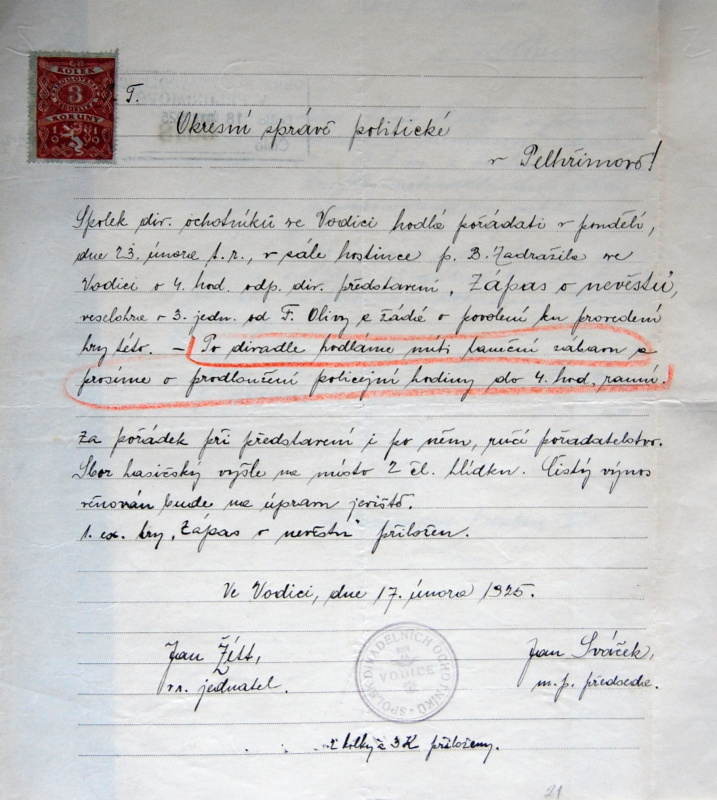 KOLEK
3
KORUNY
T.
Okresní správě politické
v Pelhřimově!
Spolek div. ochotníků ve Vodici hodlá pořádati v pondělí,
dne 23. února t. r., v sále hostince p. B. Zadražila ve
Vodici o 4. hod. odp. div. představení „Zápas o nevěstu",
veselohra o 3. jedn. od F. Olivy a žádá o povolení ku provedení
hry této. – Po divadle hodláme míti taneční zábavu a
prosíme o prodloužení policejní hodiny do 4. hod. ranní.
Za pořádek při představení i po něm, ručí pořadatelstvo.
Sbor hasičský vyšle na místo 2 čl. hlídku. Čistý výnos
věnován bude na úpravu jeviště.
1. ex. hry „Zápas o nevěstu" přiložen.
Ve Vodici, dne 17. února 1925.
Jan Žitt, Jan Sváček,
t. č. jednatel. m. p. předseda.
SPOLEK DIVADELNÍCH OCHOTNÍKŮ
VODICE
kolky à 3K přiloženy.
21